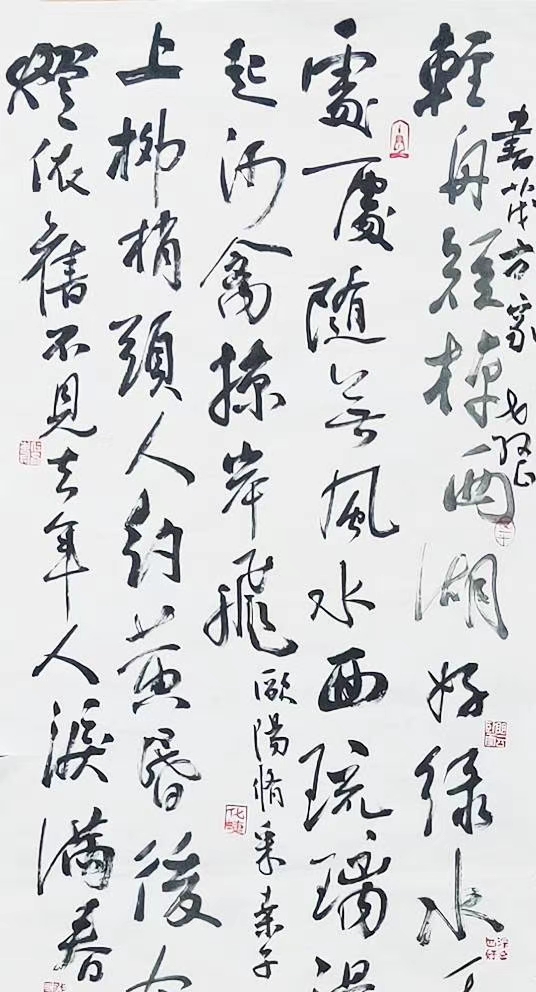 書方家
輕舟短棹西湖好綠水
處處隨無風水面琉璃
起沙禽掠岸飛
歐陽脩采桑子
上柳梢頭人約黃昏後
燈依舊不見去年人淚滿春